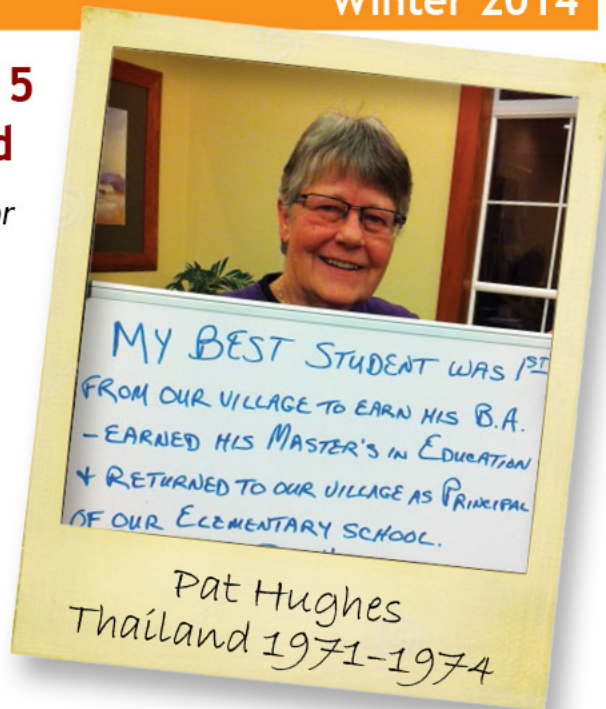 Winter 2014
5
d
or
MY BEST STUDENT WAS 1ST
FROM OUR VILLAGE TO EARN HIS B.A.
- EARNED HIS MASTER'S IN EDUCATION
+ RETURNED TO OUR VILLAGE AS PRINCIPAL
OF OUR ELEMENTARY SCHOOL.
Pat Hughes
Thailand 1971-1974